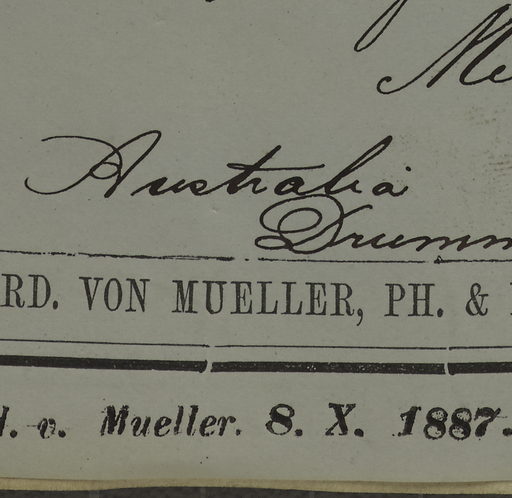 Me
Australia
Drumm
RD. VON MUELLER, PH. &
v. Mueller. 8. X. 1887.